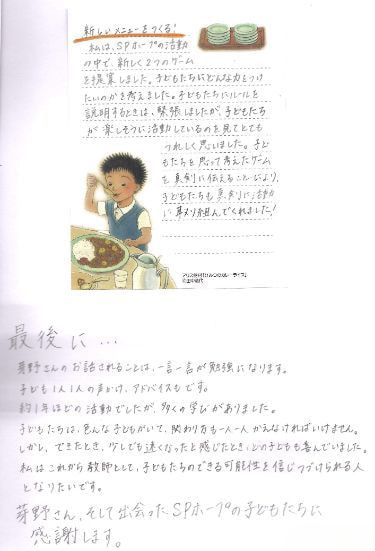 新しいメニューをつくる!
私は、SPホープの活動
の中で、新しく2つのゲーム
を提案しました。子どもたちにどんな力をつけ
たいのかを考えました。子どもたちにルールを
説明するときは、緊張しましたが、子どもたち
が楽しそうに活動しているのを見てとても
うれしく思いました。子ど
もたちを思って考えたゲーム
を真剣に伝えることにより、
子どもたちも真剣に活動
に取り組んでくれました!
最後に…
芽野さんのお話されることは、一言一言が勉強になります。
子ども1人1人の声かけ、アドバイスもです。
約1年ほどの活動でしたが、多くの学びがありました。
子どもたちは、色んな子どもがいて、関わり方も一人一人かえなければいけません。
しかし、できたとき、少しでも速くなったと感じたとき、どの子どもも喜んでいました。
私はこれから教師として、子どもたちのできる可能性を信じつづけられる人
となりたいです。
芽野さん、そして出会ったSPホープの子どもたちに
感謝します。